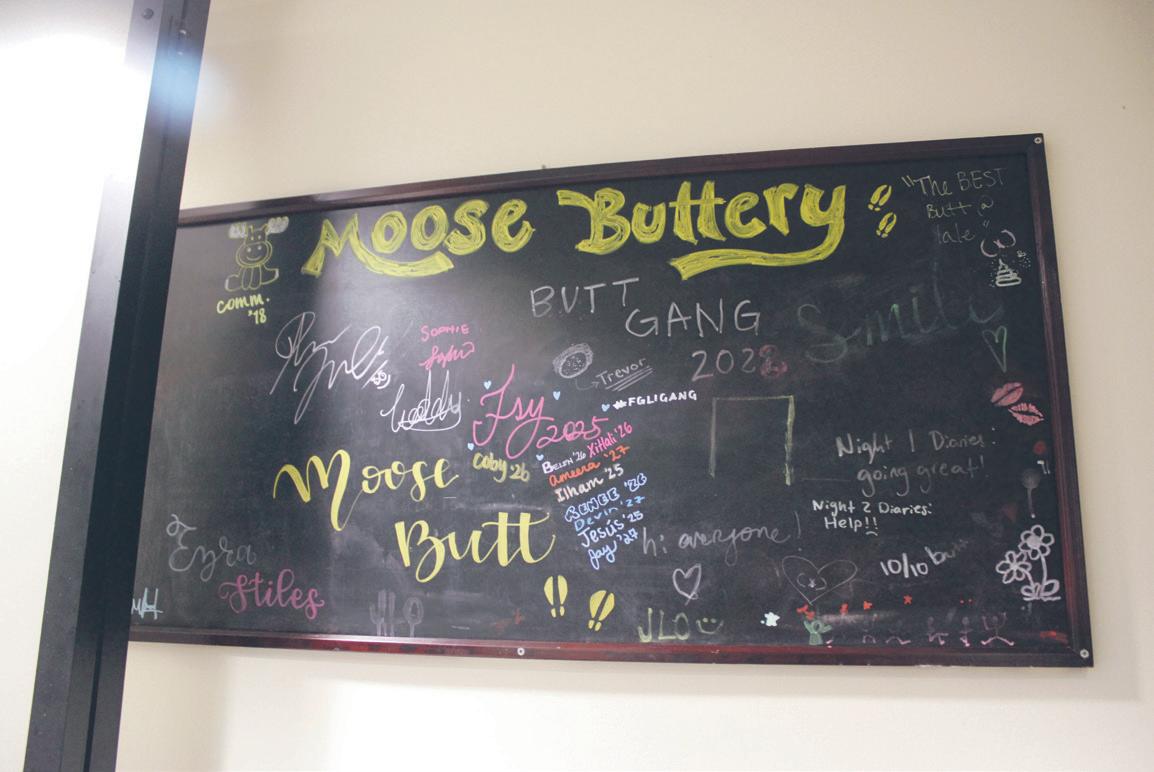 Moose Buttery
"The BEST
Butt @
Yale"
comm.
'18
BUTT
GANG
2022
Smile
SOPHIE
Trevor
#FGLIGANG
Teddy
Jsy
2025
Coby 26
Belen '26 Xitlali '26
ameera '27
Ilham '25
RENEE '26
Devin '27
Jesús '25
Jay '27
Moose
Butt
Night 1 Diaries:
going great!
Night 2 Diaries:
Help!!
hi everyone!
10/10 butt
Ezra
Stiles
JLO